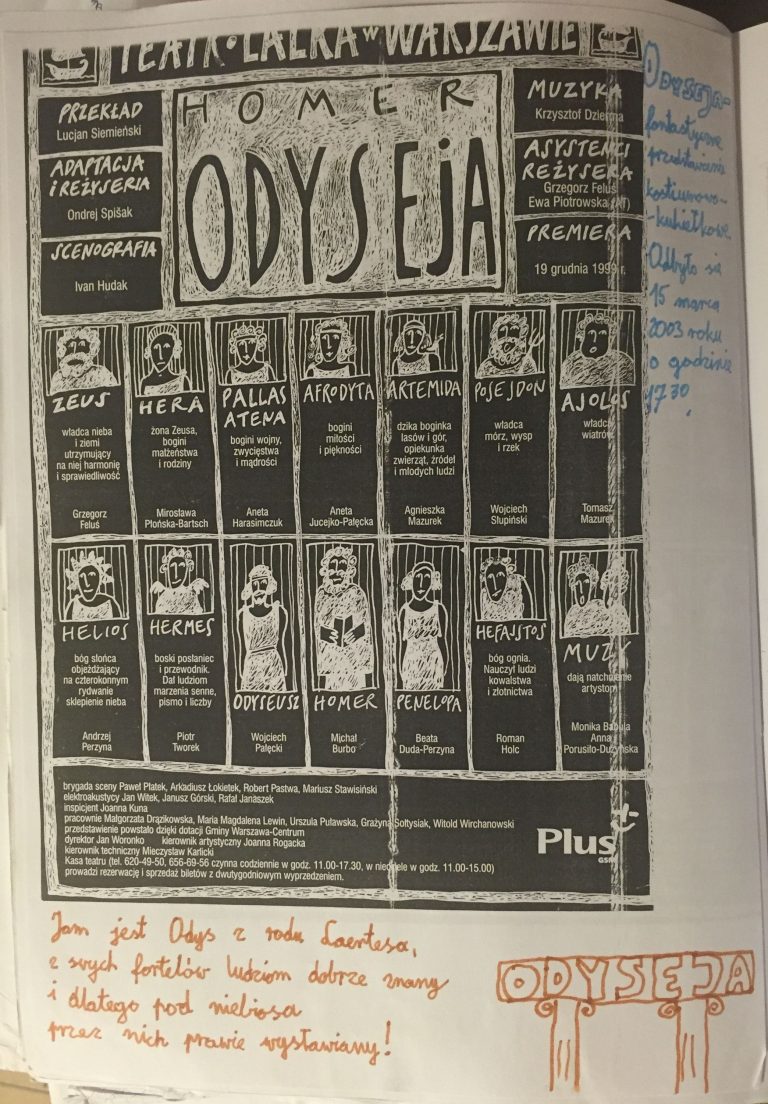 TEATR • LALKA W WARSZAWIE
PRZEKŁAD
Lucjan Siemieński
ADAPTACJA
i REŻYSERIA
Ondrej Spišak
SCENOGRAFIA
Ivan Hudak
HOMER
ODYSEJA
MUZYKA
Krzysztof Dzierma
ASYSTENCI
REŻYSERA
Grzegorz Feluś
Ewa Piotrowska (AT)
PREMIERA
19 grudnia 1999 r.
ODYSEJA-
fantastyczne
przedstawienie
kostiumowo-
-kukiełkowe.
Odbyło się
15 marca
2003 roku
o godzinie
17 30.
ZEUS
władca nieba
i ziemi
utrzymujący
na niej harmonię
i sprawiedliwość
Grzegorz
Feluś
HERA
żona Zeusa,
bogini
małżeństwa
i rodziny
Mirosława
Płońska-Bartsch
PALLAS
ATENA
bogini wojny,
zwycięstwa
i mądrości
Aneta
Harasimczuk
AFRODYTA
bogini
miłości
i piękności
Aneta
Jucejko-Pałęcka
ARTEMIDA
dzika boginka
lasów i gór,
opiekunka
zwierząt, źródeł
i młodych ludzi
Agnieszka
Mazurek
POSEJDON
władca
mórz, wysp
i rzek
Wojciech
Słupiński
AJOLOS
władca
wiatrów
Tomasz
Mazurek
HELIOS
bóg słońca
objeżdżający
na czterokonnym
rydwanie
sklepienie nieba
Andrzej
Perzyna
HERMES
boski posłaniec
i przewodnik.
Dał ludziom
marzenia senne,
pismo i liczby
Piotr
Tworek
ODYSEUSZ
Wojciech
Pałęcki
HOMER
Michał
Burbo
PENELOPA
Beata
Duda-Perzyna
HEFAJSTOS
bóg ognia.
Nauczył ludzi
kowalstwa
i złotnictwa
Roman
Holc
MUZY
dają natchnienie
artystom
Monika Babula
Anna
Porusiło-Dużyńska
brygada sceny Paweł Płatek, Arkadiusz Łokietek, Robert Pastwa, Mariusz Stawisiński
elektroakustycy Jan Witek, Janusz Górski, Rafał Janaszek
inspicjent Joanna Kuna
pracownie Małgorzata Drązikowska, Maria Magdalena Lewin, Urszula Puławska, Grażyna Sołtysiak, Witold Wirchanowski
przedstawienie powstało dzięki dotacji Gminy Warszawa-Centrum
dyrektor Jan Woronko kierownik artystyczny Joanna Rogacka
kierownik techniczny Mieczysław Karlicki
Kasa teatru (tel. 620-49-50, 656-69-56 czynna codziennie w godz. 11.00-17.30, w niedziele w godz. 11.00-15.00)
prowadzi rezerwację i sprzedaż biletów z dwutygodniowym wyprzedzeniem.
Plus
GSM
Jam jest Odys z rodu Laertesa,
z swych fortelów ludziom dobrze znany
i dlatego pod niebiosa
przez nich prawie wysławiany!
ODYSEJA